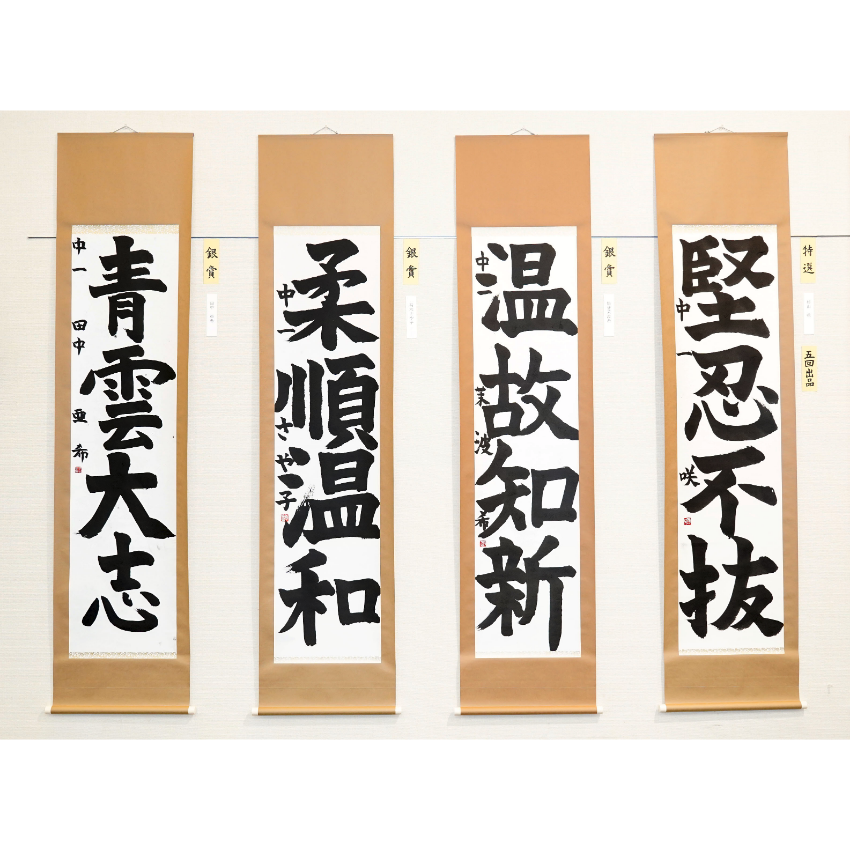 堅忍不抜
中一 咲
特選
五回出品
温故知新
茉波希
銀賞
柔順温和
中一 さや子
銀賞
青雲大志
中一 田中亜希
銀賞